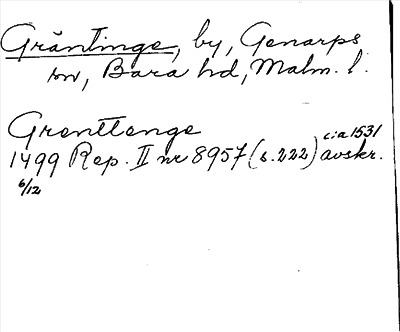 Gräntinge, by, Genarps
sn, Bara hd, Malm. l.
Grenttenge
c:a 1531
1499 Rep. II nr 8957 (s. 222) avskr.
6/12